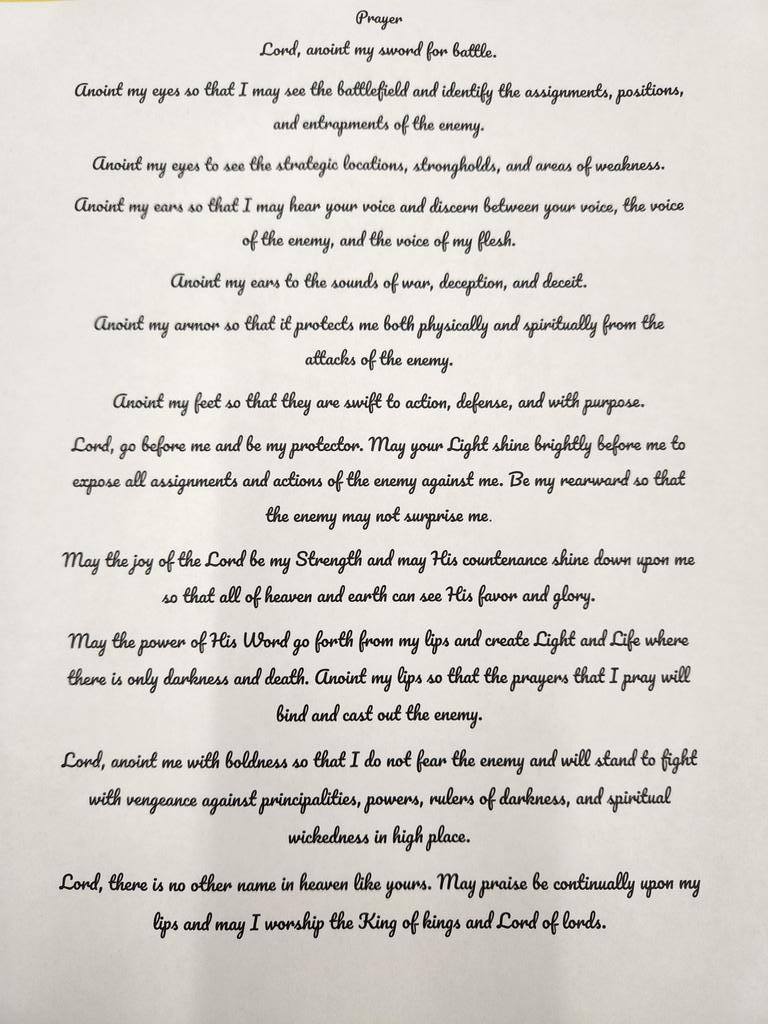 Prayer
Lord, anoint my sword for battle.
Anoint my eyes so that I may see the battlefield and identify the assignments, positions,
and entrapments of the enemy.
Anoint my eyes to see the strategic locations, strongholds, and areas of weakness.
Anoint my ears so that I may hear your voice and discern between your voice, the voice
of the enemy, and the voice of my flesh.
Anoint my ears to the sounds of war, deception, and deceit.
Anoint my armor so that it protects me both physically and spiritually from the
attacks of the enemy.
Anoint my feet so that they are swift to action, defense, and with purpose.
Lord, go before me and be my protector. May your Light shine brightly before me to
expose all assignments and actions of the enemy against me. Be my rearward so that
the enemy may not surprise me.
May the joy of the Lord be my Strength and may His countenance shine down upon me
so that all of heaven and earth can see His favor and glory.
May the power of His Word go forth from my lips and create Light and Life where
there is only darkness and death. Anoint my lips so that the prayers that I pray will
bind and cast out the enemy.
Lord, anoint me with boldness so that I do not fear the enemy and will stand to fight
with vengeance against principalities, powers, rulers of darkness, and spiritual
wickedness in high place.
Lord, there is no other name in heaven like yours. May praise be continually upon my
lips and may I worship the King of kings and Lord of lords.